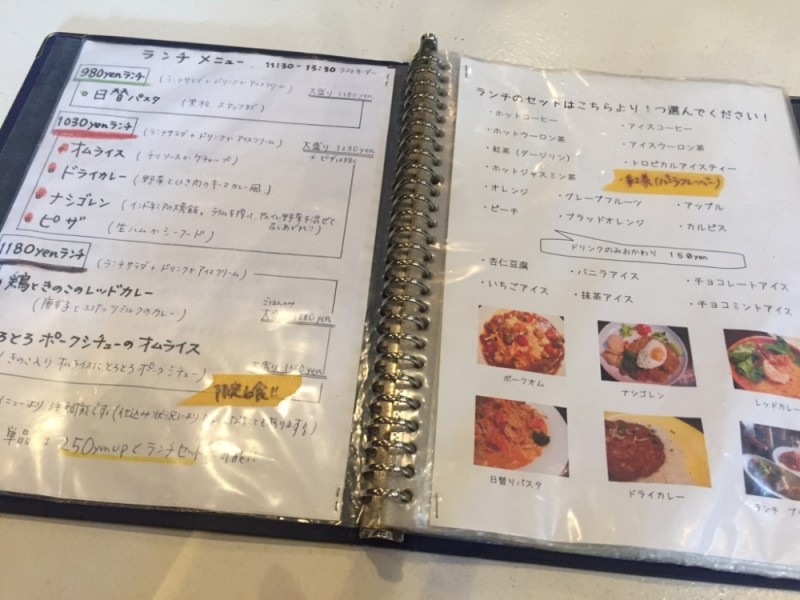 ランチ メニュー 11:30-15:30 ラストオーダー
980yenランチ (ランチサラダ + ドリンクかアイスクリーム)
・日替パスタ 大盛り 1180yen
1030yenランチ (ランチサラダ + ドリンクかアイスクリーム)
大盛り 1230yen
・オムライス (デミソースかケチャップ)
・ドライカレー (野菜とひき肉のキーマカレー風)
・ナシゴレン
・ピザ (生ハムかシーフード)
1180yenランチ (ランチサラダ + ドリンクかアイスクリーム)
鶏ときのこのレッドカレー
(唐辛子とココナッツミルクのカレー)
ろとろ ポークシチューのオムライス
きのこ入り オムライスにとろとろ ポークシチュー)
限定6食!!
単品 250yenupでランチセット
ランチのセットはこちらより1つ選んでください!
・ホットコーヒー ・アイスコーヒー
・ホットウーロン茶 ・アイスウーロン茶
・紅茶(ダージリン) ・トロピカルアイスティー
・ホットジャスミン茶 ・紅茶(バニラフレーバー)
・オレンジ ・グレープフルーツ ・アップル
・ピーチ ・ブラッドオレンジ ・カルピス
ドリンクのみおかわり 150yen
・杏仁豆腐 ・バニラアイス ・チョコレートアイス
・いちごアイス ・抹茶アイス ・チョコミントアイス
ポークオム ナシゴレン レッドカレー
日替りパスタ ドライカレー ランチ プ